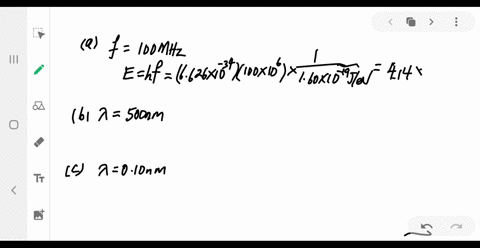 (a) f = 100MHz
E = hf = (6.626×10⁻³⁴)(100×10⁶) × 1/1.60×10⁻¹⁹J/eV = 4.14×
(b) λ = 500nm
(c) λ = 0.10nm
Tт